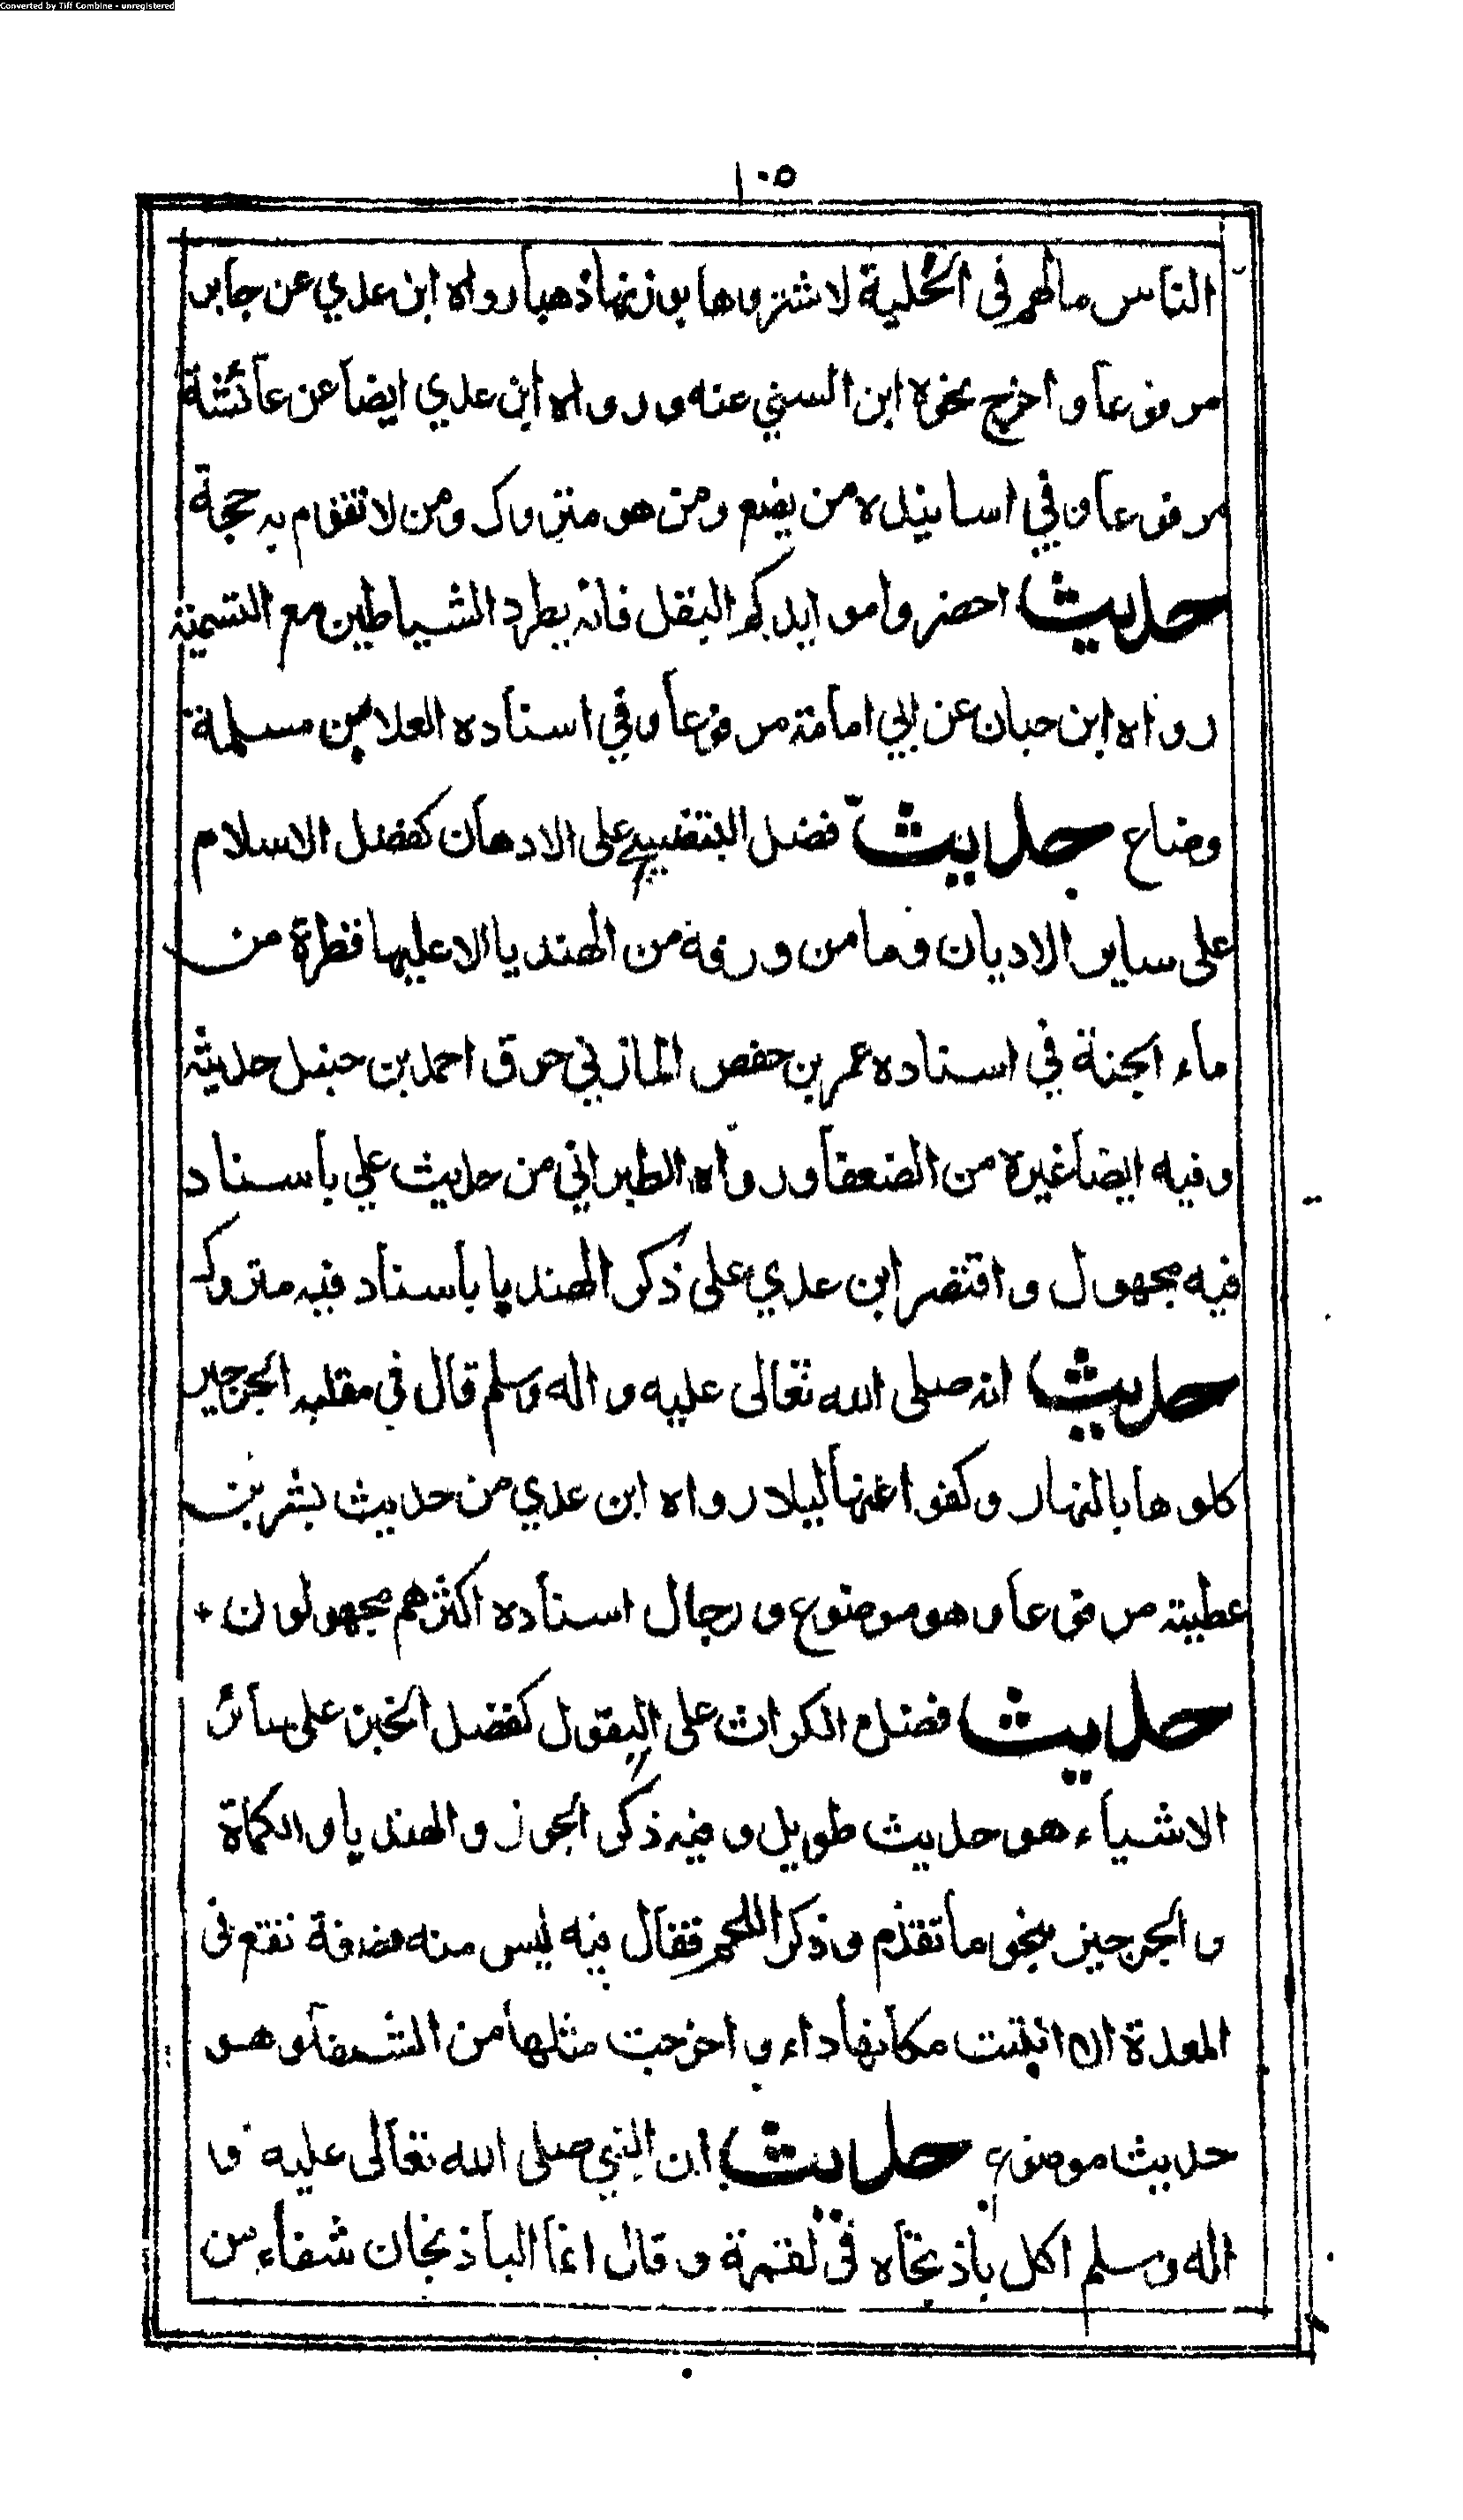 Converted by Tiff Combine - unregistered
١٠٥
الناس مالهم في الحلبة لاشتروها بوزنها ذهبا رواه ابن عدي عن جابر
مرفوعا و اخرج نحوه ابن السني عنه و رواه ابن عدي ايضا عن عائشة
مرفوعا وفي اسانيده من يضع ومن هو متروك ومن لا تقوم به حجة
حديث احضروا موايدكم البقل فانه يطرد الشياطين مع التسمية
رواه ابن حبان عن ابي امامة مرفوعا وفي اسناده العلا بن مسلمة
وضاع حديث فضل البنفسج على الادهان كفضل الاسلام
على ساير الاديان وما من ورقة من الهنديا الا عليها قطرة من
ماء الجنة في اسناده عمر بن حفص المازني حرق احمد بن حنبل حديثه
وفيه ايضا غيره من الضعفا ورواه الطبراني من حديث علي باسناد
فيه مجهول و اقتصر ابن عدي على ذكر الهنديا باسناد فيه متروك
حديث انه صلى الله تعالى عليه و اله وسلم قال في مقلبه الجرجير
كلوها بالنهار وكفوا عنها ليلا رواه ابن عدي من حديث بشر بن
عطية مرفوعا وهو موضوع و رجال اسناده اكثرهم مجهولون +
حديث فضل الكراث على البقول كفضل الخبز على سائر
الاشياء هو حديث طويل وفيه ذكر الجوز و الهنديا و الكماة
و الجرجير بنحو ما تقدم و ذكر اللحم فقال فيه ليس منه مضغة تقع في
المعدة الا انبتت مكانها داء و اخرجت مثلها من الشفا وهو
حديث موضوع حديث ان النبي صلى الله تعالى عليه و
اله وسلم اكل باذنجانه في لقمة و قال انما الباذنجان شفاء من